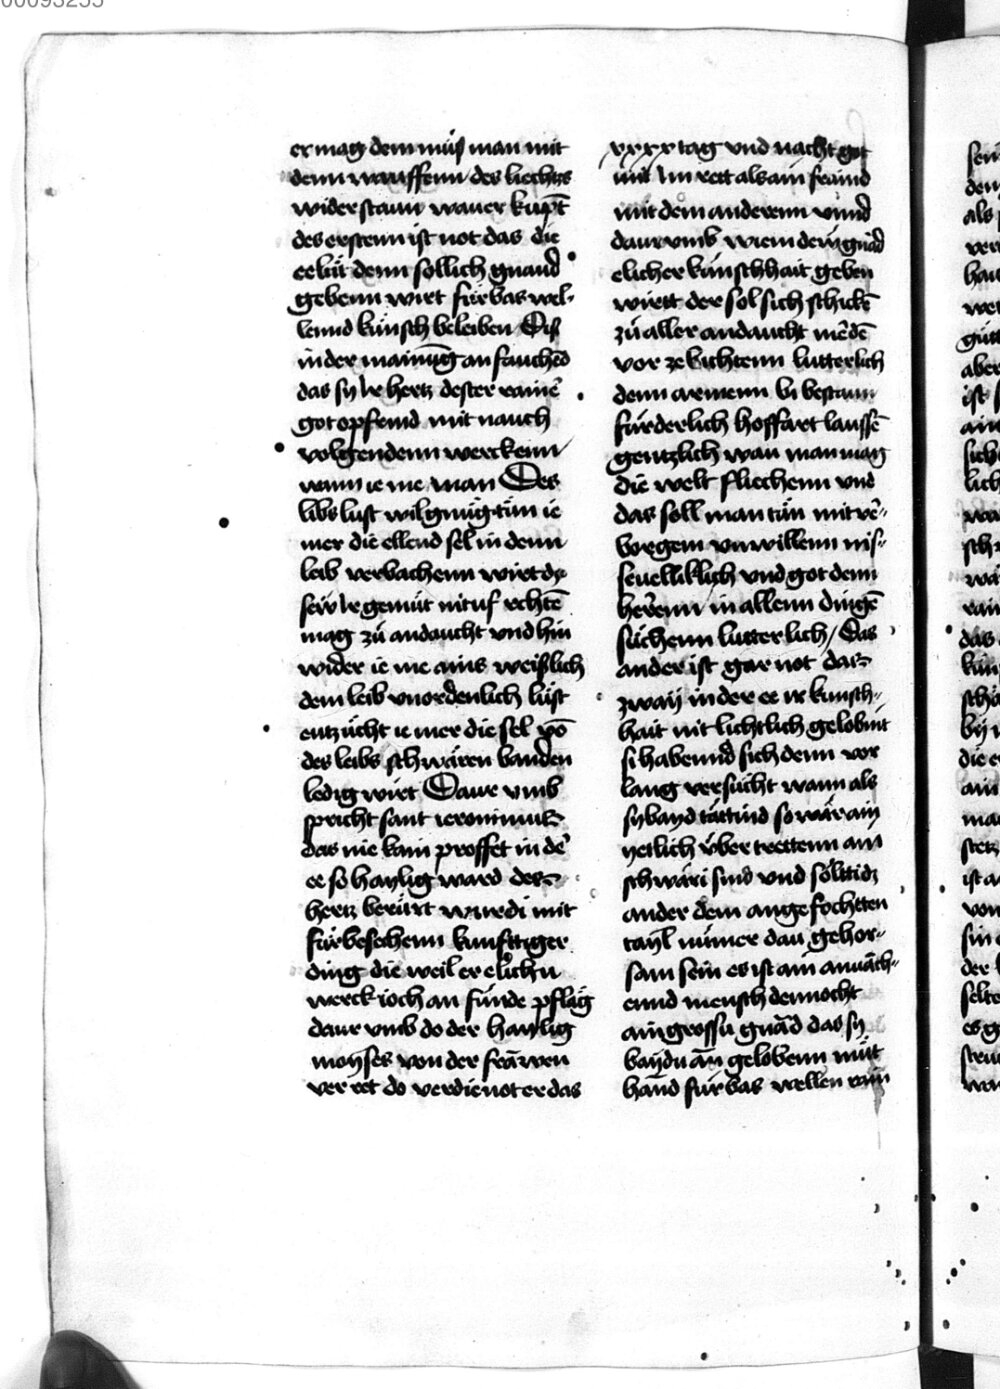 00093255
er mag dem müß man mit
denn wauffenn des liechtes
widerstann waver kupt
des erstenn ist not das die
eelüt denn sollich gnaud
gebenn wirt fürbas wel-
lennd künsch beleiben Diß
in der mainung anfauched
das sy ir hertz dester rainer
got opfernd mit nauch
volgendenn werckenn
wann ie me man Des
libs lust wil gnüg tün ie
mer die ellend sel in denn
leib verbachenn wirt dz
sew ir gemüt nit uf rehtē
mag zü andaucht vnd hin
wider ie me ains weißlich
dem leib vnordenlich lust
entzücht ie mer die sel vō
des leibs schwären banden
ledig wirt Daur vmb
spricht sant ieronimus
das nie kain proffet in der
ee so haylig ward des
hertz berürt wurdi mit
fürbesechenn kunfttiger
ding die weil er elichn
werck ioch an sünde pflag
daur vmb do der haylig
moyses von der frawen
ver ret do verdienot er das
xxxx tag vnd nacht got
mit im rett als ain fraind
mit dem anderenn vnnd
daur vmb wiem der gnad
elicher künschhait geben
wirtt der sol sich schickē
zü aller andaucht mēdē
vor ze bichtenn lutterlich
denn armenn bi bestann
fürderlich hoffart laussē
gentzlich wan man mag
die welt fliechenn vnd
das soll man tün mit ver-
borgem vnwillenn mis-
seuelliklich vnd got denn
herenn in allenn dingē
süchenn lutterlich / Das
ander ist gar not das
zway in der ee ir kunsch-
hait nit lichtlich gelobint
si habennd sich denn vor
lang versücht wann als
sy bayd tättind so wär ain
yetlich über trettenn ain
schwäri sünd vnd sölttidz
ander dem angefochtten
tayl nümer dau gehor-
sam sein es ist ain anuäch-
ennd mensch dennocht
ain grossu gnād das sy
baydu an gelobenn mit
hand fürbas wellen rain